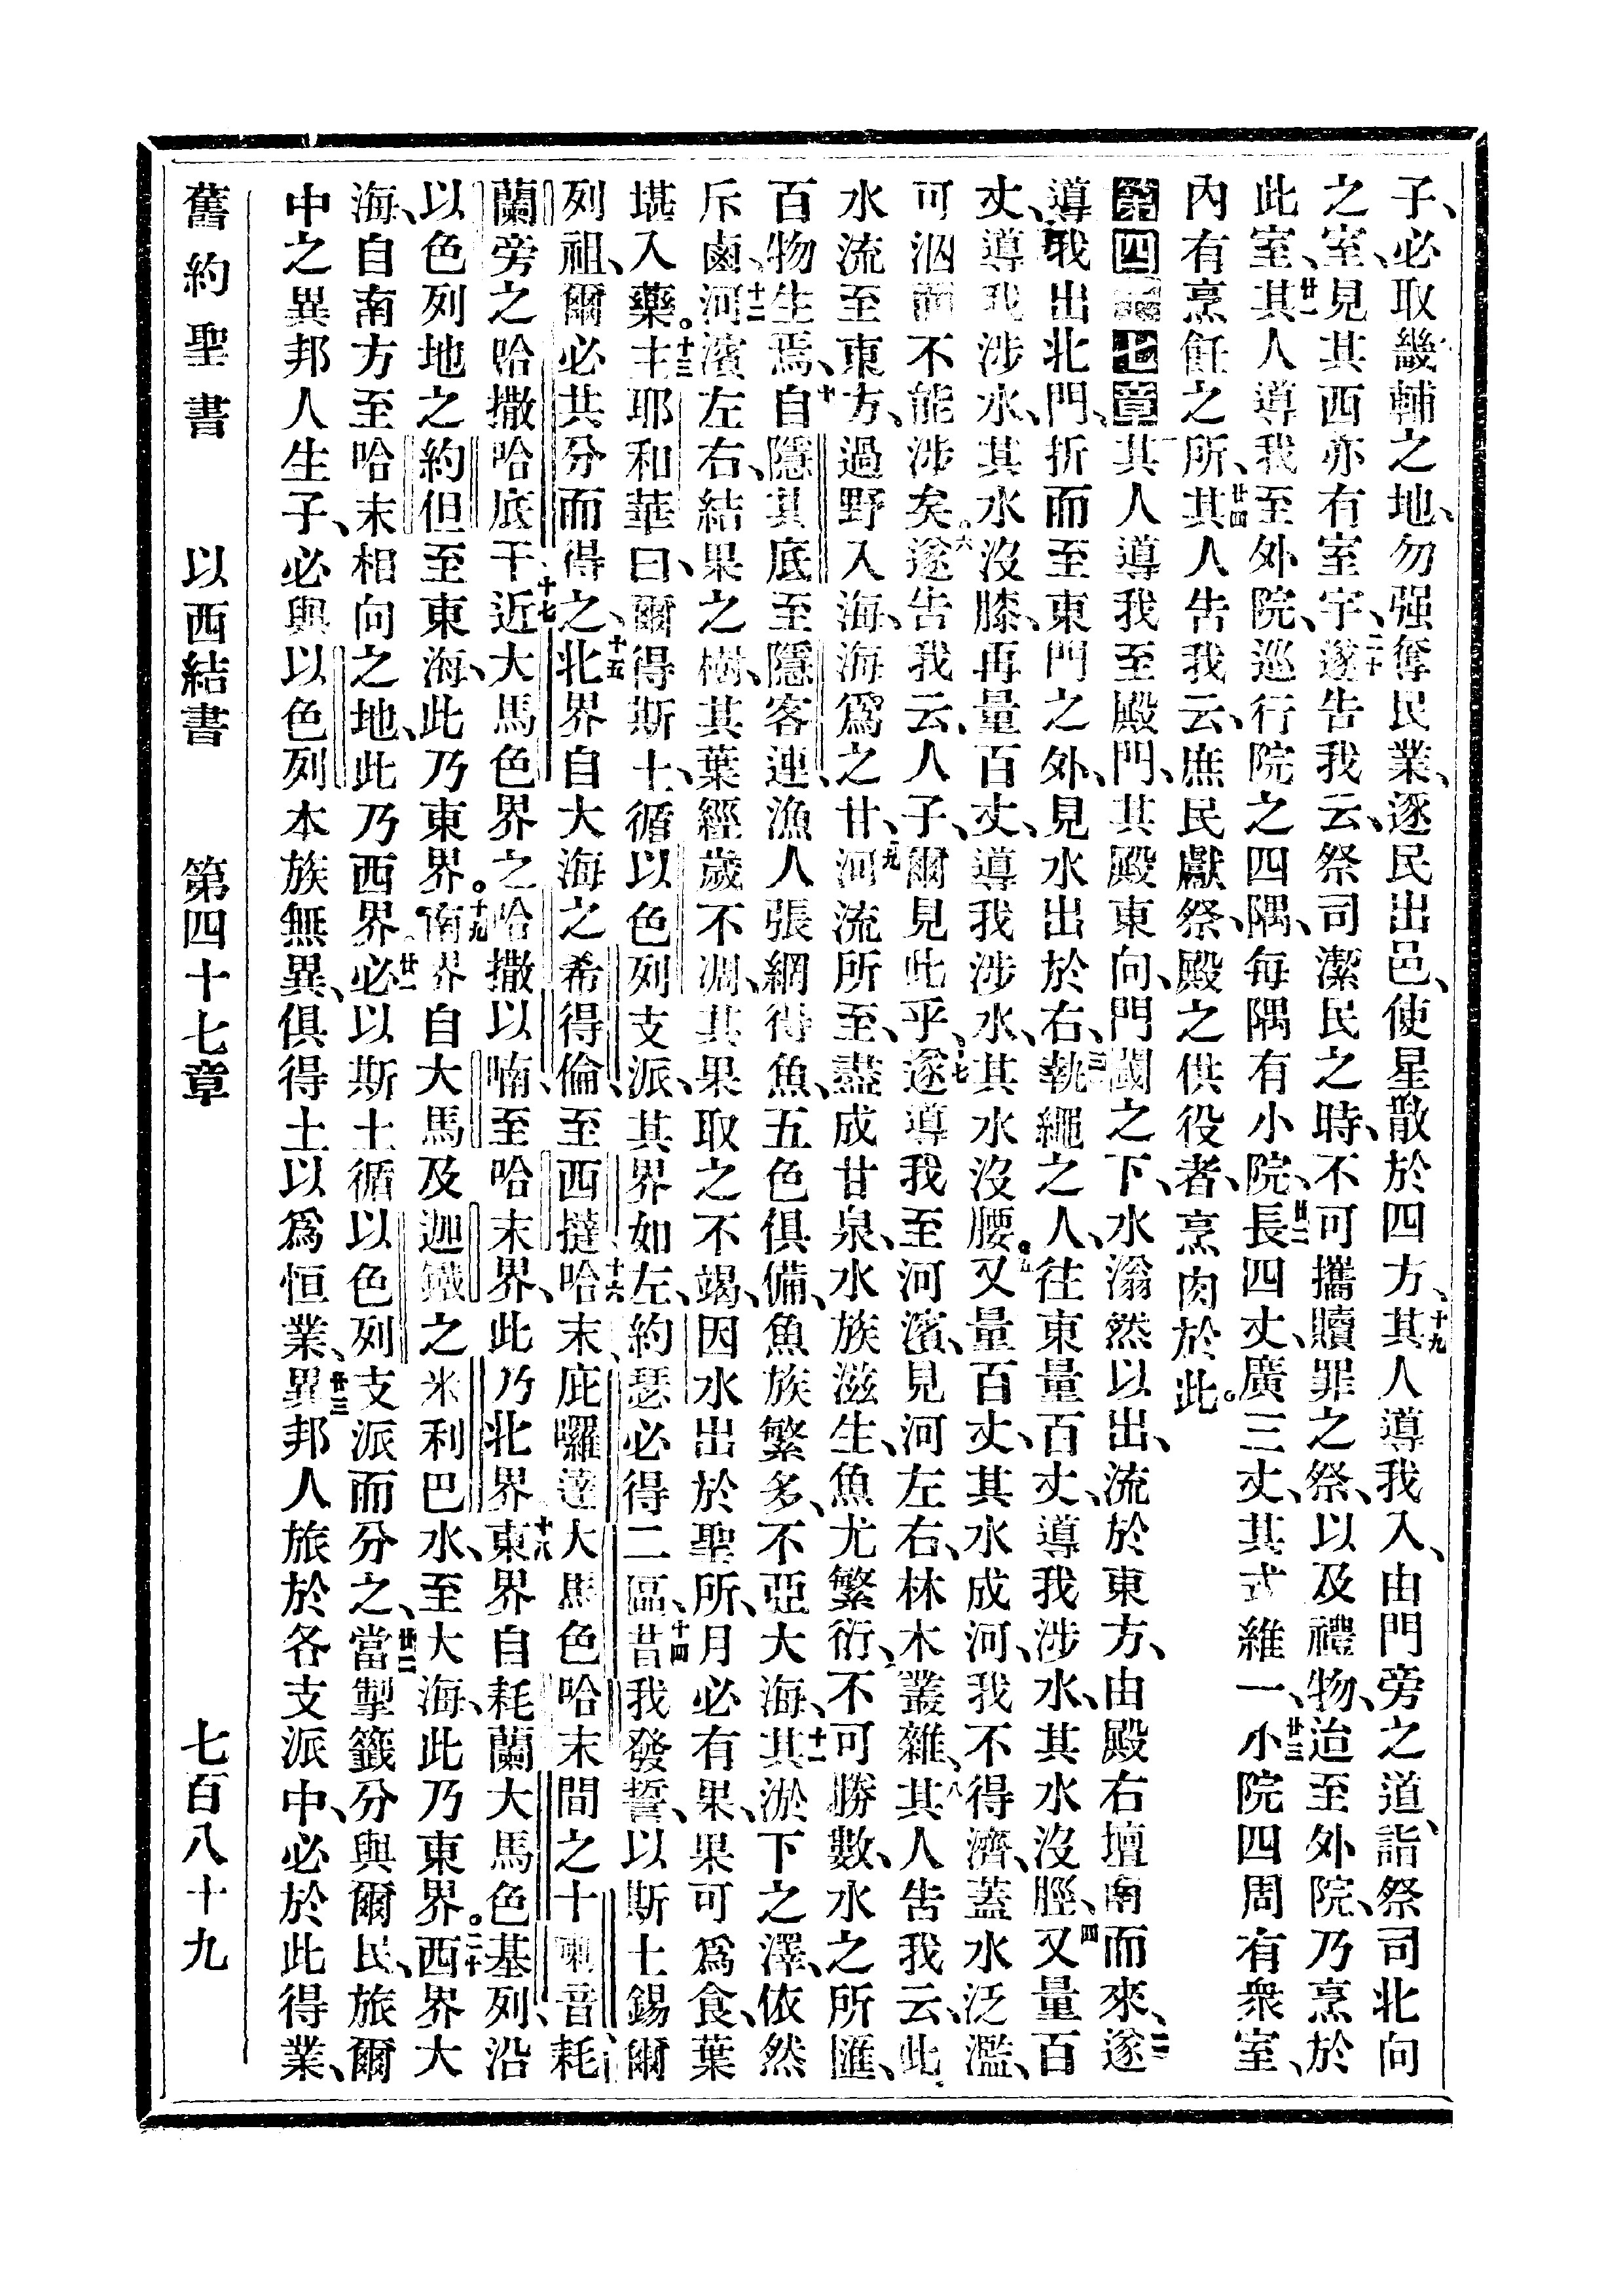 子、必取畿輔之地、勿强奪民業、逐民出邑、使星散於四方、十九其人導我入、由門旁之道、詣祭司北向
之室、見其西亦有室宇、二十遂告我云、祭司潔民之時、不可攜贖罪之祭、以及禮物、治至外院、乃烹於
此室、廿一其人導我至外院、巡行院之四隅、每隅有小院、廿二長四丈、廣三丈、其式維一、廿三小院四周有衆室、
內有烹飪之所、廿四其人告我云、庶民獻祭、殿之供役者、烹肉於此。
第四十七章 其人導我至殿門、其殿東向、門閾之下、水滃然以出、流於東方、由殿右壇南而來、二遂
導我出北門、折而至東門之外、見水出於右、三執繩之人、往東量百丈、導我涉水、其水沒脛、四又量百
丈、導我涉水、其水沒膝、再量百丈、導我涉水、其水沒腰。五又量百丈、其水成河、我不得濟、蓋水泛濫、
可泅而不能涉矣。六遂告我云、人子、爾見此乎、遂七導我至河濱、見河左右、林木叢雜、八其人告我云、此
水流至東方、過野入海、海爲之甘、九河流所至、盡成甘泉、水族滋生、魚尤繁衍、不可勝數、水之所匯、
百物生焉、十自隱其底至隱客連、漁人張網得魚、五色俱備、魚族繁多、不亞大海、十一其淤下之澤、依然
斥鹵、十二河濱左右、結果之樹、其葉經歲不凋、其果取之不竭、因水出於聖所、月必有果、果可爲食、葉
堪入藥。十三主耶和華曰、爾得斯土、循以色列支派、其界如左、約瑟必得二區、十四昔我發誓、以斯土錫爾
列祖、爾必共分而得之、十五北界自大海之希得倫、至西撻哈十六末庇囉達大馬色哈末間之十喇音耗
蘭旁之哈撒哈底干、十七近大馬色界之哈撒以喃、至哈末界、此乃北界、十八東界自耗蘭大馬色基列、沿
以色列地之約但至東海、此乃東界。十九南界自大馬及迦鐵之米利巴水、至大海、此乃東界。二十西界大
海、自南方至哈末相向之地、此乃西界。廿一必以斯土循以色列支派而分之、廿二當掣籤分與爾民、旅爾
中之異邦人生子、必與以色列本族無異、俱得土以爲恒業、廿三異邦人旅於各支派中、必於此得業、
舊約聖書 以西結書 第四十七章 七百八十九